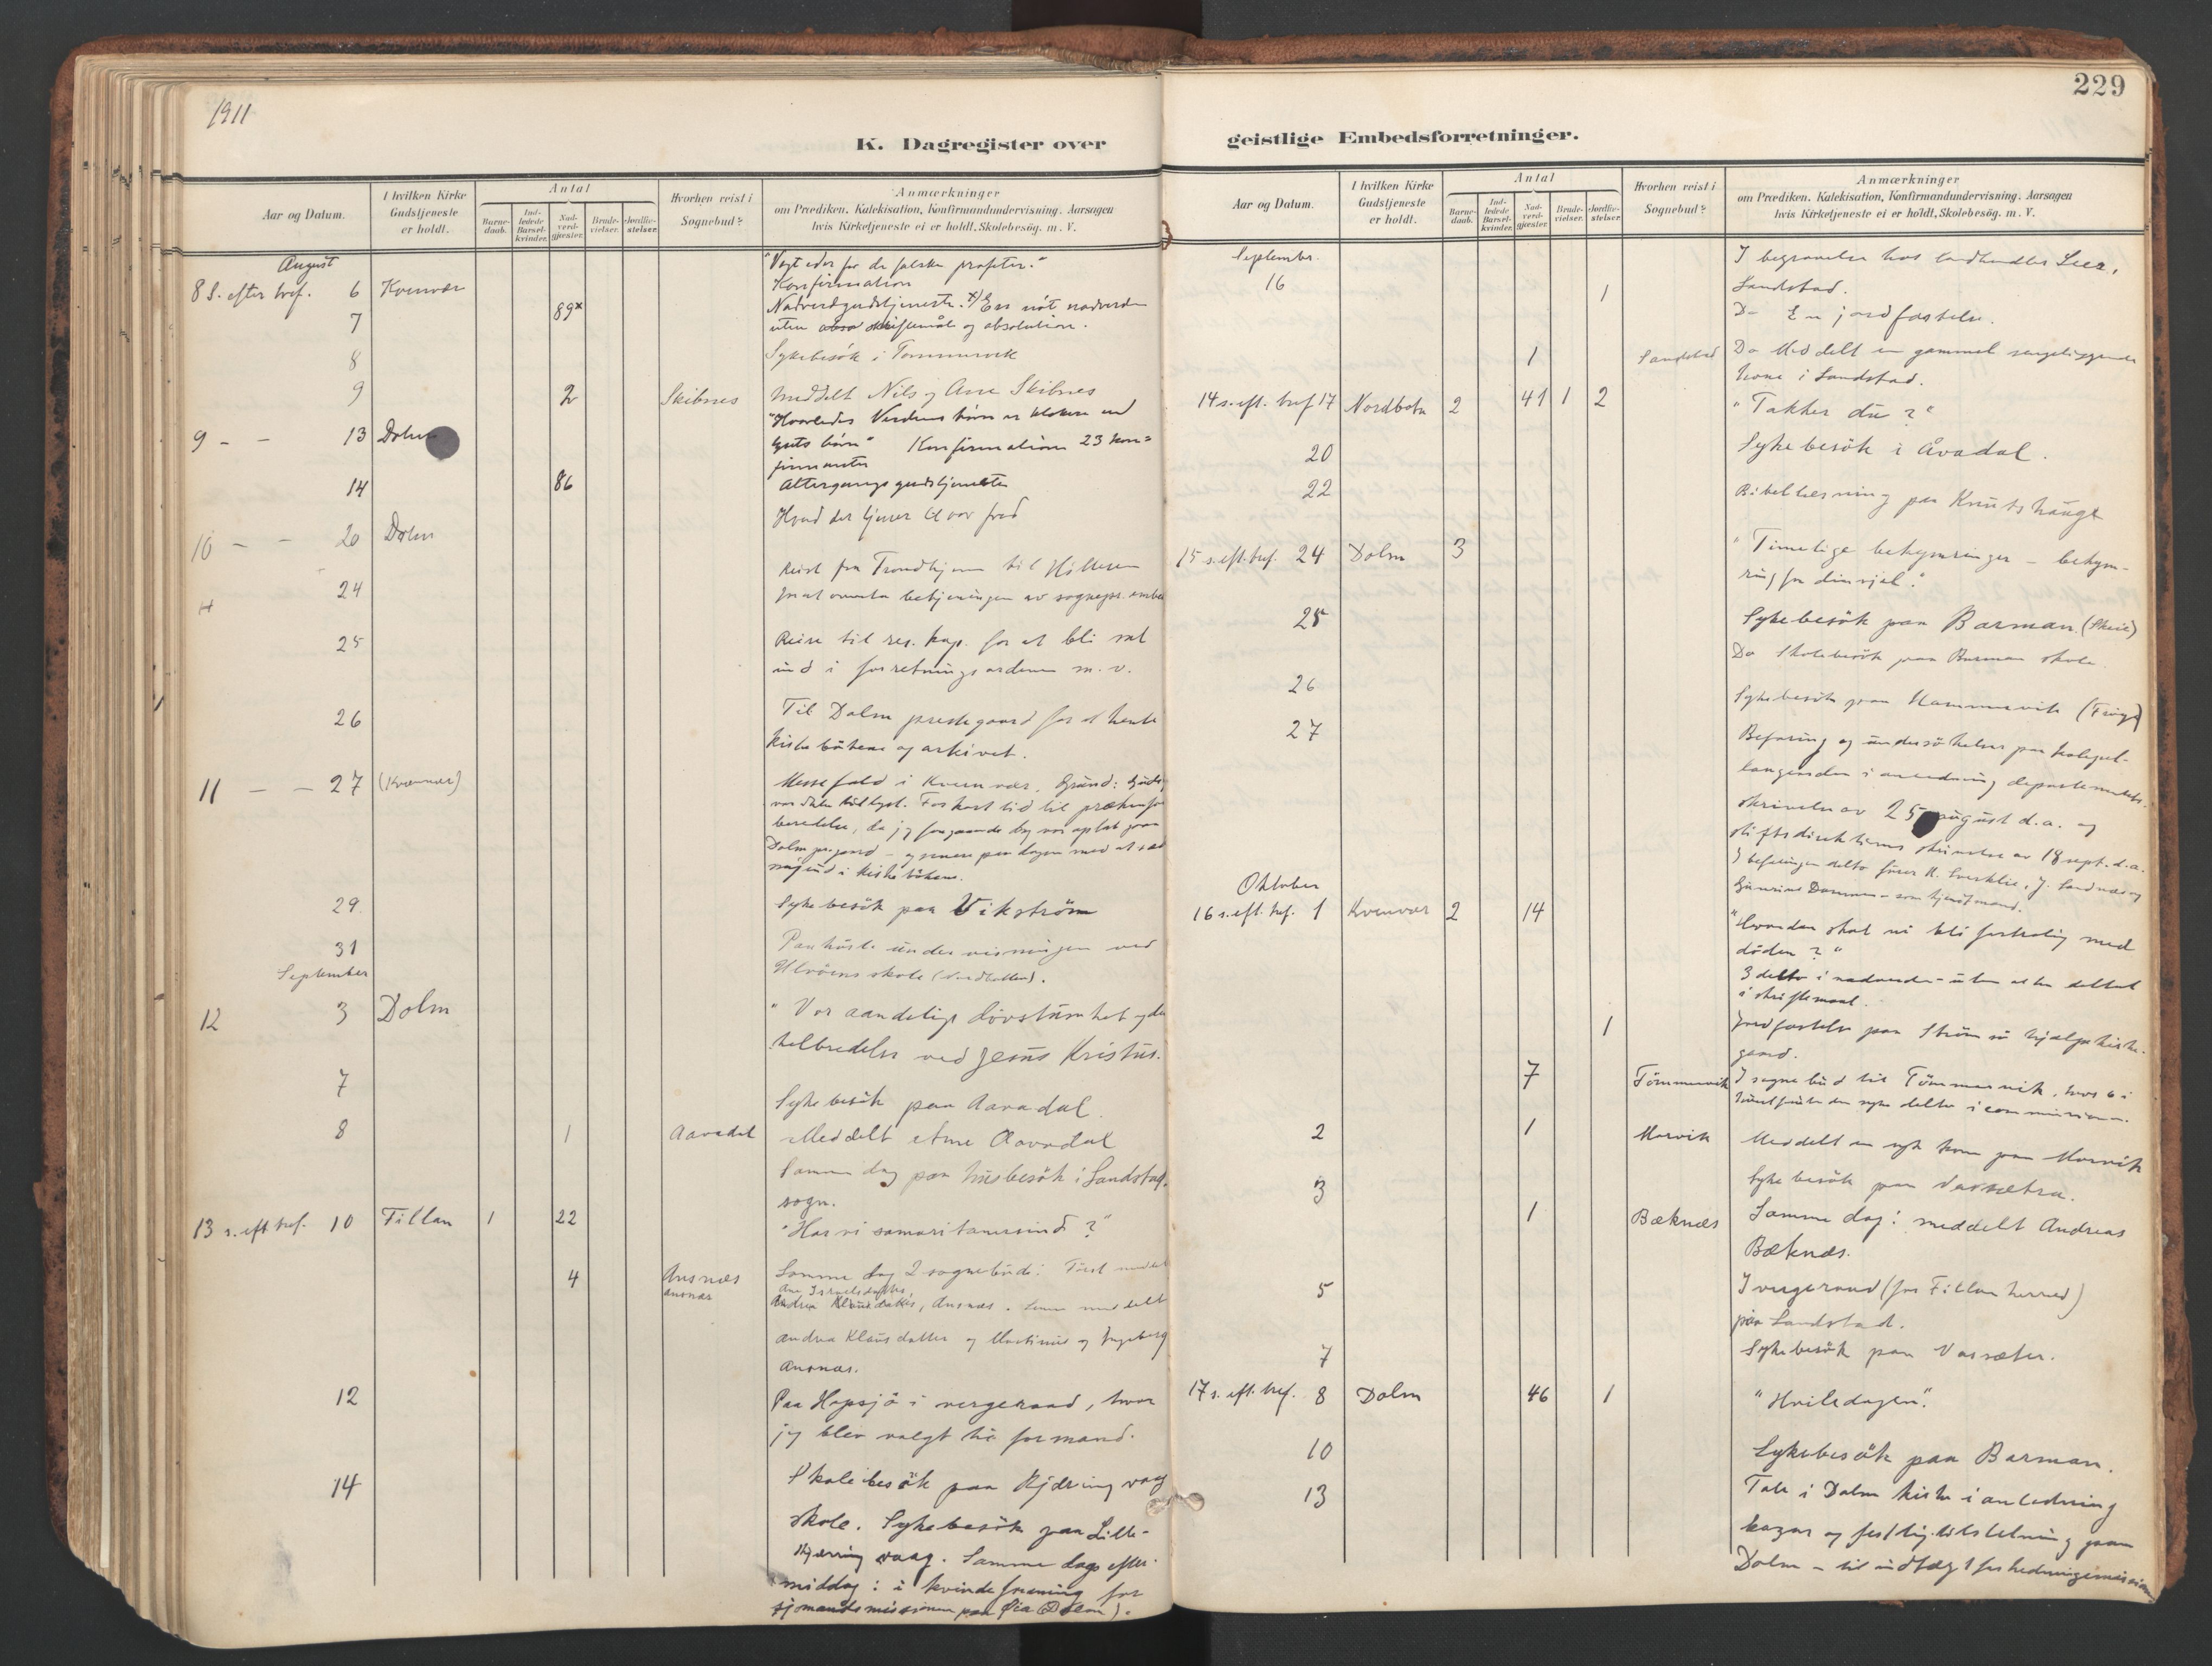 1911
K. Dagregister over
Aar og Datum.
I hvilken Kirke
Gudstjeneste
er holdt.
Antal
Barne-
daab.
Ind-
ledede
Barsel-
kvinder.
Nad-
verd-
gjæster.
Brude-
vielser.
Jordfæ-
stelser.
Hvorhen reist i
Sognebud?
Anmærkninger
om Prædiken, Katekisation, Konfirmandundervisning, Aarsagen
hvis Kirketjeneste ei er holdt, Skolebesög, m. V.
August
"Vogt eder for de falske profeter."
8 S. efter tref. 6 Kvenvær Konfirmation
7 89x Nadverdgudstjeneste. x) En nöt nadverden
uten skriftemåle og absolution.
8 Sykebesök i Tömmervik
9 2 Skibnes Meddelt Nils og Ane Skibnes
"Hvorledes Verdens börn er klokere end
9 - - 13 Dolm Guds börn" Konfirmation 23 kon=
firmanter
14 86 Altergangsgudstjeneste
10 - - 20 Dolm Hvad der tjener til vor fred
24 Reist fra Trondhjem til Hitteren
for at overta betjeningen av sognepr. embe
25 Reise til res. kap. for at bli sat
ind i forretningsordenen m. v.
26 Til Dolm prestegaard for at hente
kirkebökene og arkivet.
11 - - 27 (Kvenvær) Messefald i Kvenvær. Grund: Guds
var ikke tillyst. For kort tid til præken for
beredelse, da jeg foregaaende dag var optat paa
Dolm pr.gaard - og senere paa dagen med at sæt
mig ind i kirkebökene.
29. Sykebesök paa Vikström
31 Paahöste undervisningen ved
Ulvöens skole (Nordbotten).
September
12 3 Dolm "Vor aandelige dövstumhet og dens
helbredelse ved Jesus Kristus.
7 Sykebesök paa Aavadal.
8 1 Aavadal Meddelt Ane Aavadal
Samme dag paa husbesök i Sandstad
sogn.
13 s. eft tref. 10 Fillan 1 22 "Har vi samaritanersind?"
4 Ansnæs Samme dag 2 sognebud: Först meddelt
Ansnæs Ane Israelsdatter,
Andrea Klausdatter, Ansnæs. Senere meddelt
Andrea Klausdatter og Martinus og Ingeborg
Ansnæs.
12 Paa Hopsjö i vergeraad, hvor
jeg blev valgt til formand.
14 Skolebesök paa Kjerringvaag
skole. Sykebesök paa Lille-
Kjerringvaag. Samme dags efter-
middag: i kvindeforening for
sjömandsmissionen paa Öia (Dolm).
229
geistlige Embedsforretninger.
Aar og Datum.
I hvilken Kirke
Gudstjeneste
er holdt.
Antal
Barne-
daab.
Ind-
ledede
Barsel-
kvinder.
Nad-
verd-
gjæster.
Brude-
vielser.
Jordfæ-
stelser.
Hvorhen reist i
Sognebud?
Anmærkninger
om Prædiken, Katekisation, Konfirmandundervisning, Aarsagen
hvis Kirketjeneste ei er holdt, Skolebesög, m. V.
September.
16 I begravelse hos landhandler
Sandstad.
1 Do En jordfæstelse.
1 Sandstad Do Meddelt en gammel sengeliggende
kone i Sandstad.
14 s. eft. tref 17 Nordbotn 2 41 1 2 "Takker du?"
20 Sykebesök i Åvadal.
22 Bibellesning paa Knutshaugt
15 s. eft. tref. 24 Dolm 3 "Timelige bekymringer - bekym-
ring for din sjel."
25 Sykebesök paa Barman. (Skeie)
Do Skolebesök paa Barman skole.
26 Sykebesök paa Hammervik (Fröya)
27 Befaring og undersökelser paa
i anledning departementets
skrivelse av 25 august d.a. og
stiftsdirektionens skrivelse av 18 sept. d.a.
I befaringen deltok
som kjentmand.
Oktober
16 s. eft. tref. 1 Kvenvær 2 14 "Hvordan skal vi bli fortrolig med
döden?"
3 deltok i nadverden - uten at ha deltat
i skriftemaal.
1 Jordfæstelse paa Ström hjælpekirke-
gaard.
7 Tömmervik I sognebud til Tömmervik, hvor 6 i
huset foruten den syke deltok i communionen.
2 1 Morvik Meddelt en syk kone paa Morvik
3 Sykebesök paa Vassætra.
1 Bæknæs Samme dag: meddelt Andreas
Bæknæs.
5 I vergeraad (for Fillan herred)
paa Sandstad.
7 Sykebesök paa Vassæter.
17 s. eft. tref. 8 Dolm 46 1 "Hviledagen".
10 Sykebesök paa Barman.
13 Tale i Dolm kirke i anledning
bazar og festlig tilstelning paa
Dolm - til indtægt for hedningemissionen